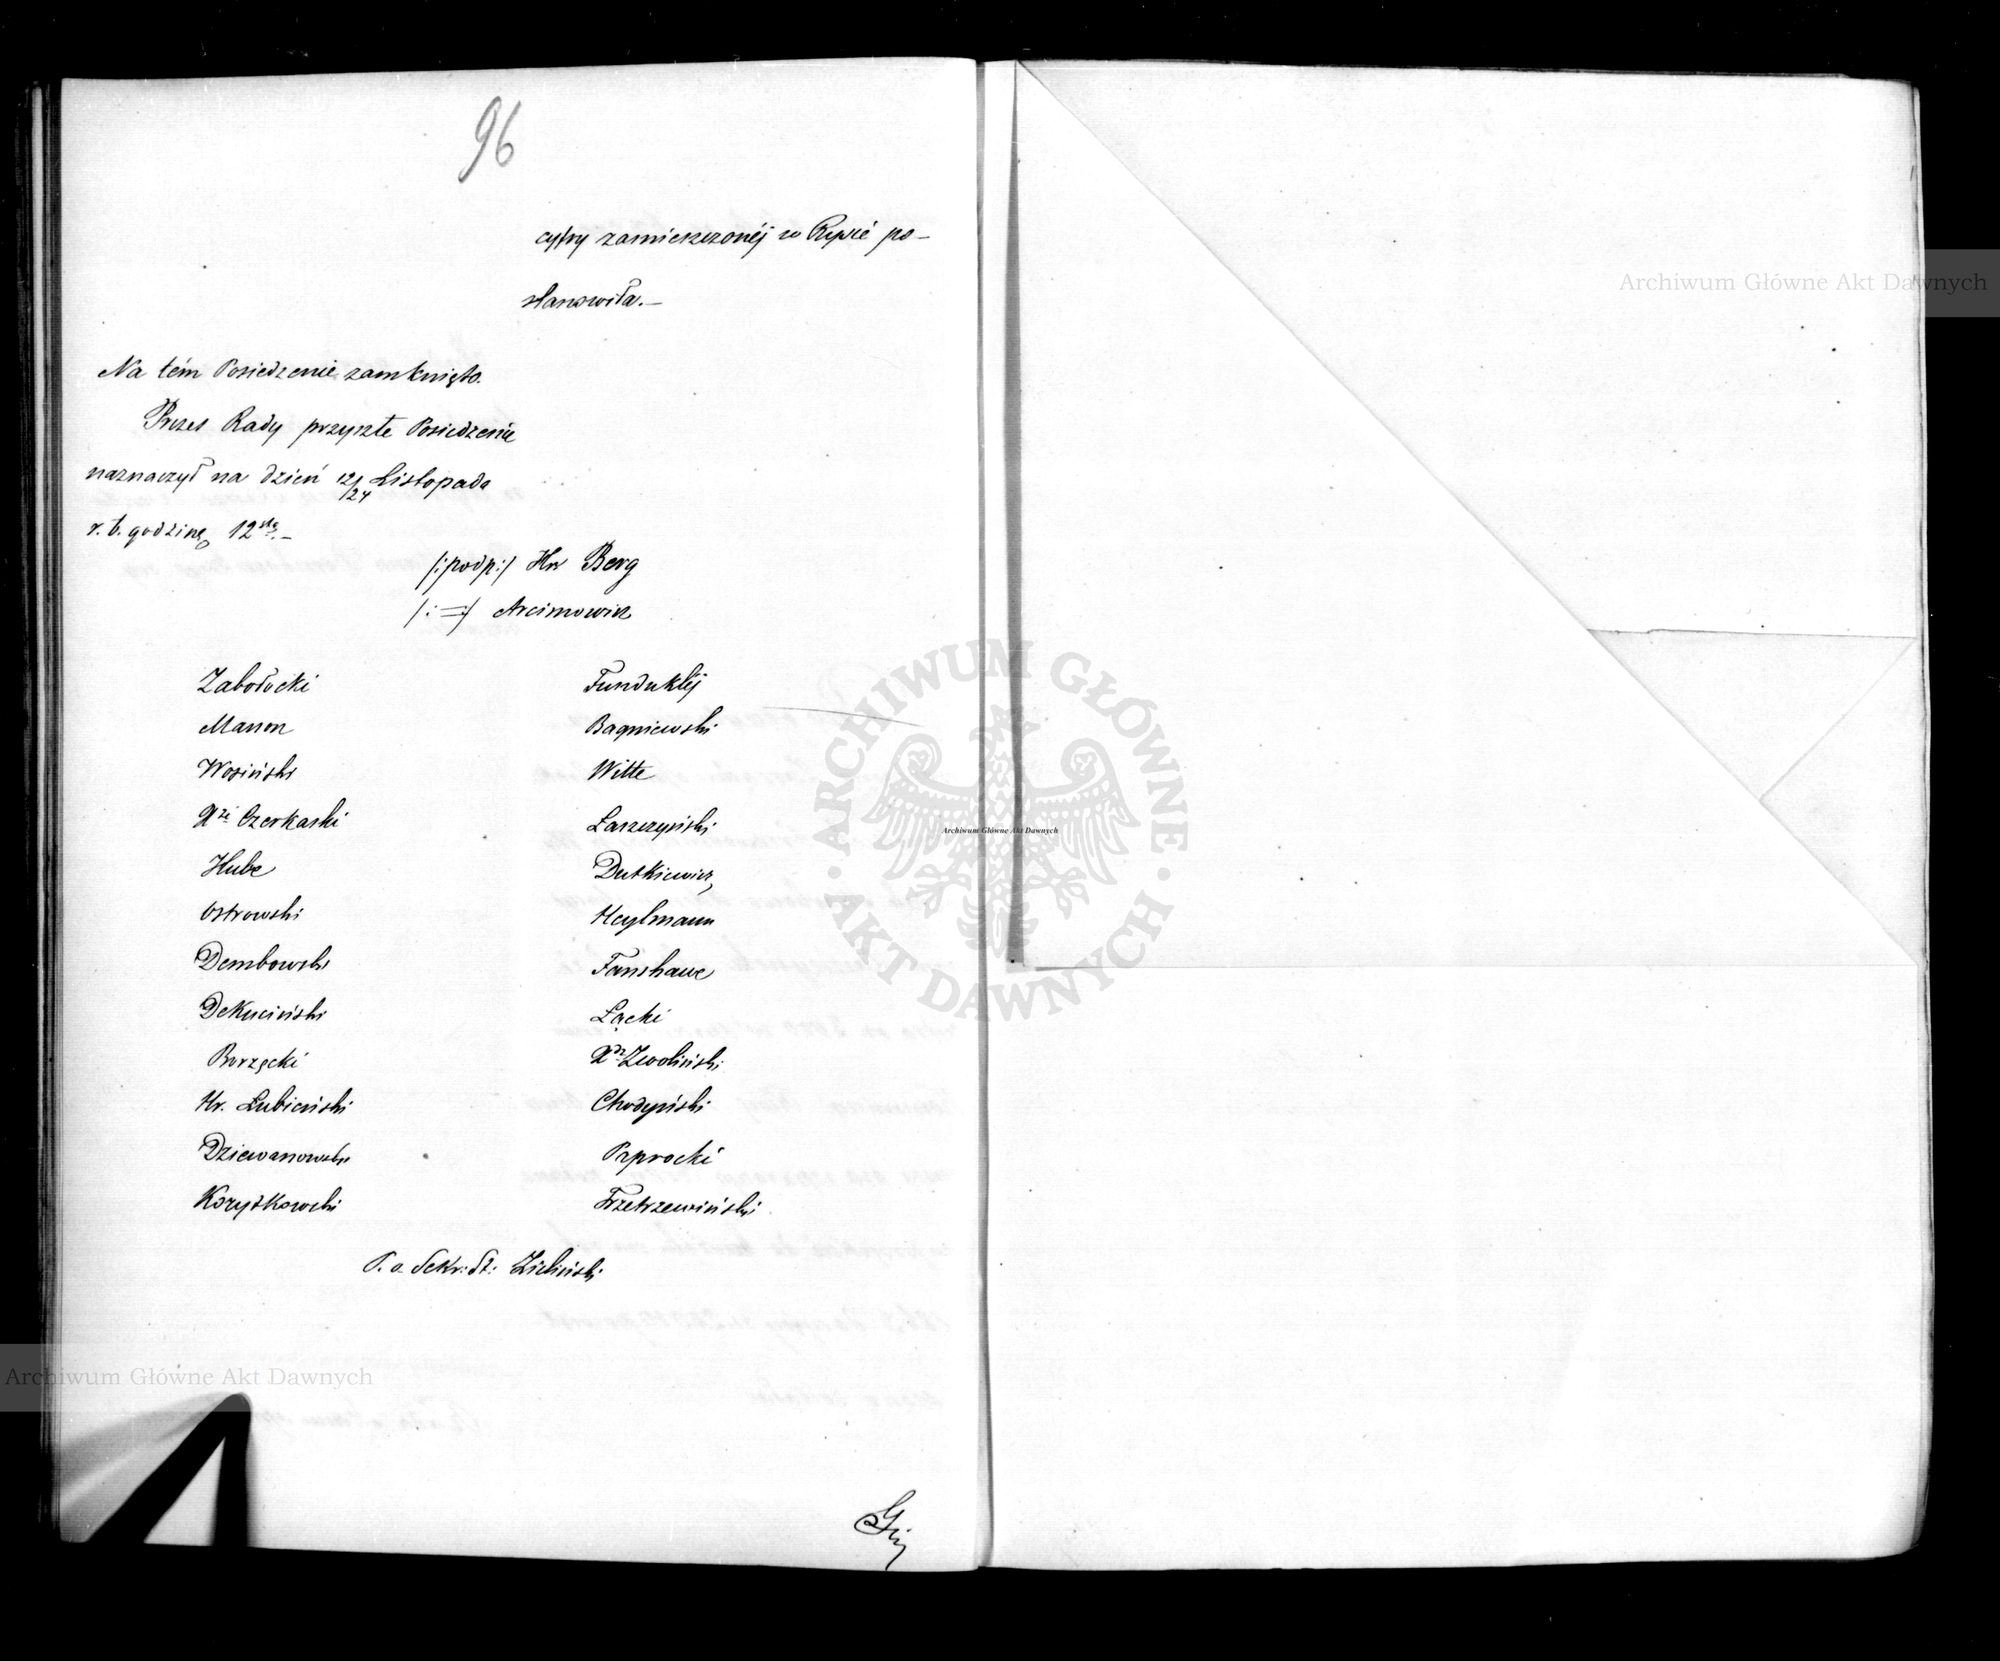 96
cyfry zamieszczonéj w Rysie po-
stanowiła.-
Na tém Posiedzenie zamknięto.
Prezes Rady przyszłe Posiedzenie
naznaczył na dzień 12/24 Listopada
r. b. godzinę 12stą.-
/:podp:/ Hr Berg
/: = :/ Arcimowicz
Zabołocki
Funduklej
Manon
Bagniewski
Wosiński
Witte
Xże Czerkaski
Łaszczyński
Hube
Dutkiewicz
Ostrowski
Heylmann
Dembowski
Fanshawe
Dekuciński
Łącki
Borzęcki
Xdz Zwoliński
Hr. Łubieński
Chodyński
Dziewanowski
Paprocki
Korytkowski
Trzetrzewiński
P. o. Sekr: St: Zieliński
Archiwum Główne Akt Dawnych
ARCHIWUM GŁÓWNE AKT DAWNYCH
Archiwum Główne Akt Dawnych
Archiwum Główne Akt Dawnych